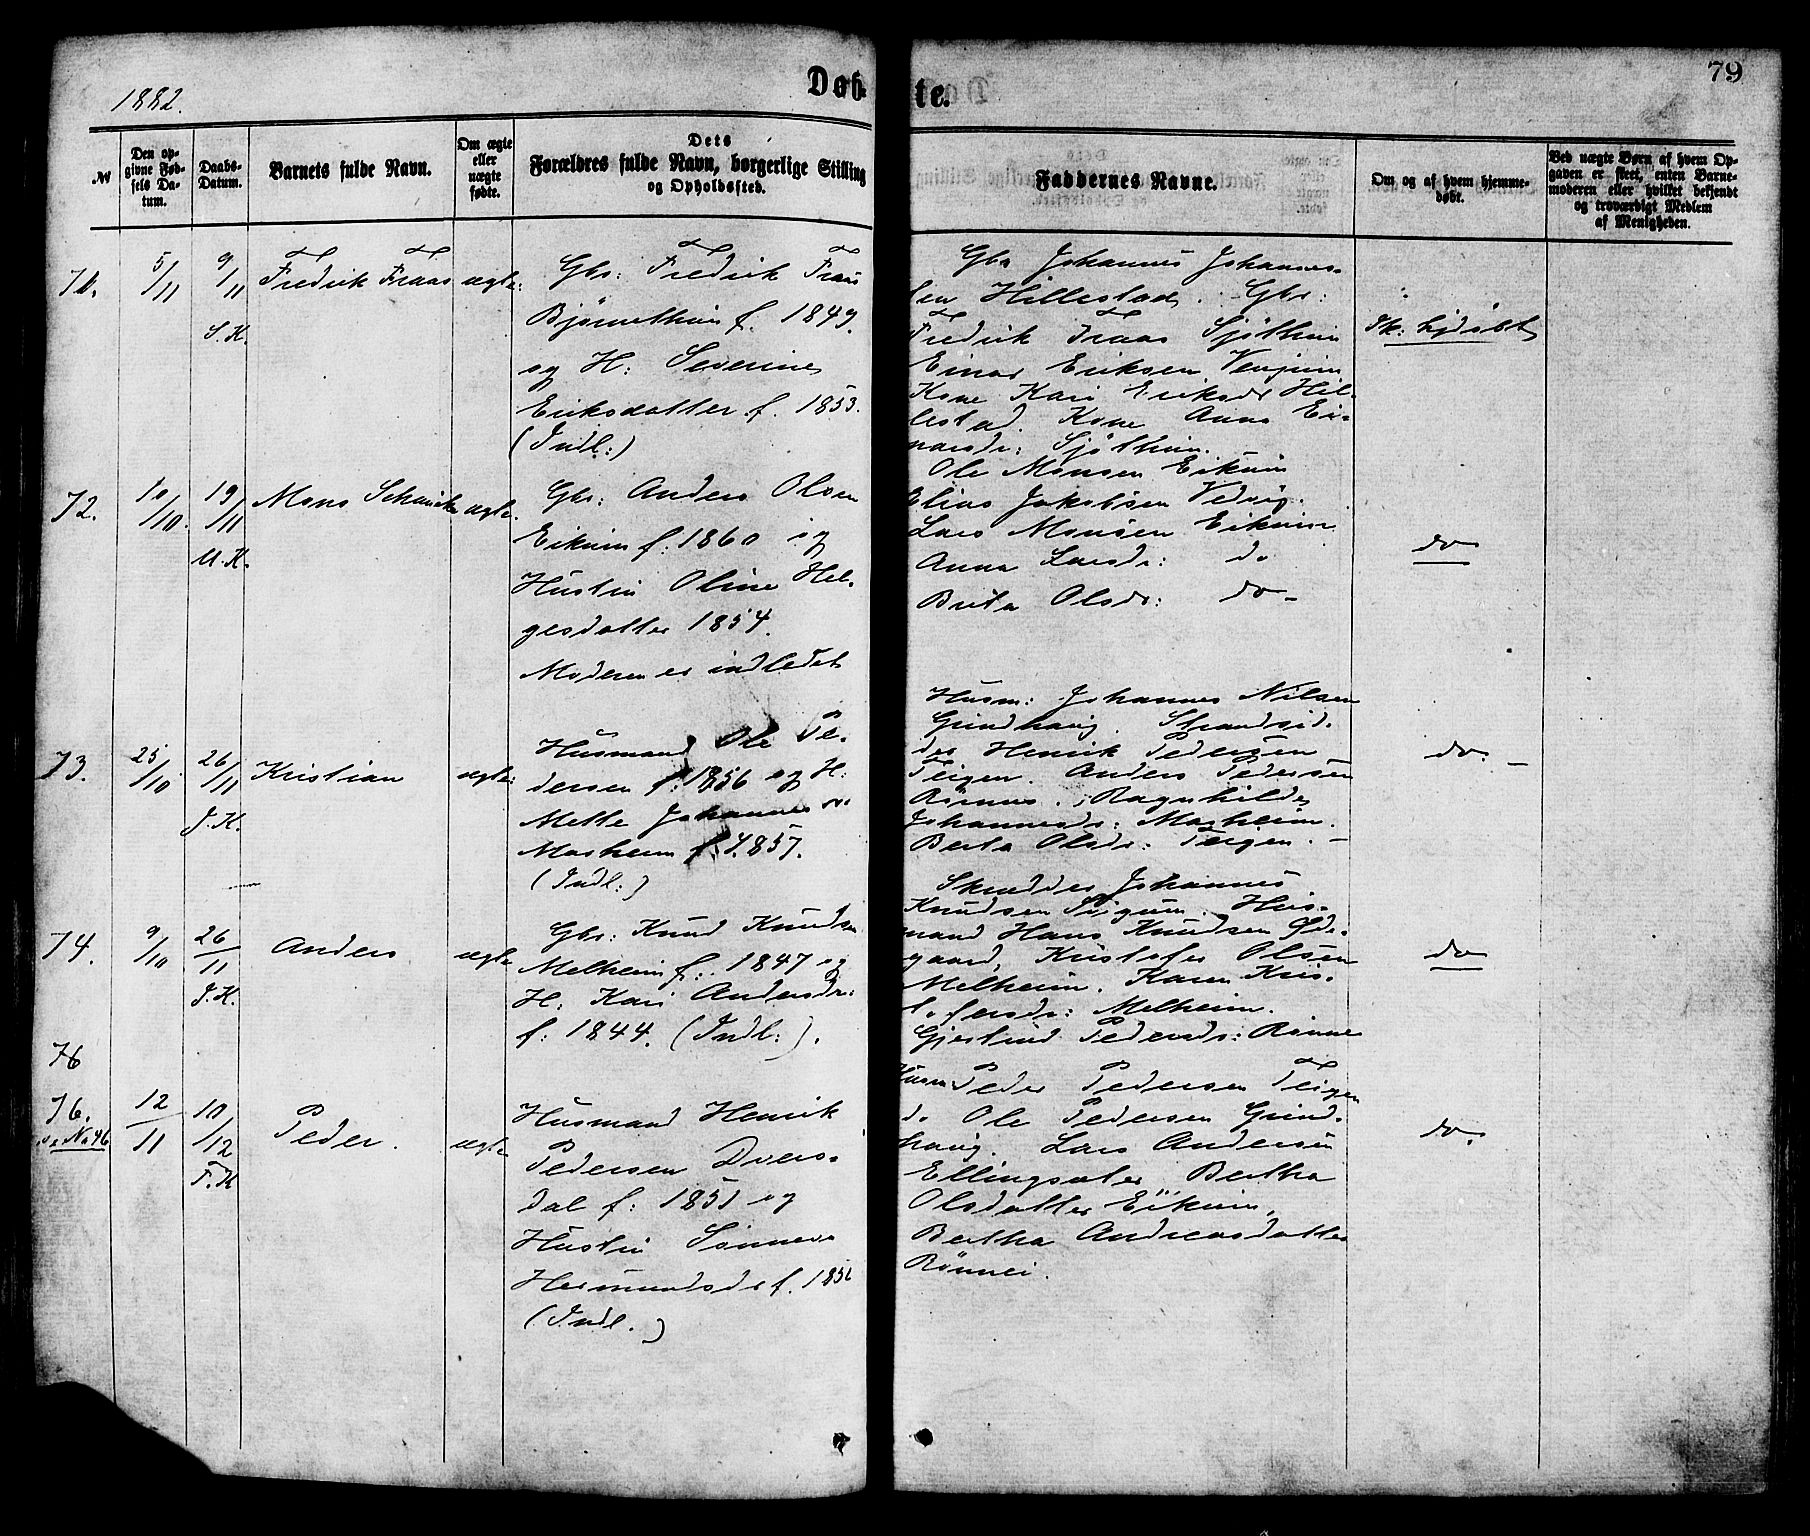 1882.
Døb
te.
79
№
Den op-
givne Fød-
sels Da-
tum.
Daabs-
Datum.
Barnets fulde Navn.
Om ægte
eller
uægte
fødte.
Dets
Forældres fulde Navn, borgerlige Stilling
og Opholdssted.
Faddernes Navne.
Om og af hvem hjemme-
døbt.
Ved uægte Børn af hvem Op-
gaven er skeet, enten Barne-
moderen eller hvilket bekjendt
og troværdigt Medlem
af Menigheden.
71.
5/11
9/11
S. K.
Fredrik Fraas
ægte:
Gbr: Fredrik Fraas
f. 1849.
og H: Severine
Eriksdatter f. 1853.
(Indl:)
Gbr Johannes Johannes-
sen Hillestad. Gbr:
Fredrik Fraas Sjøthun
Einar Eriksen Venjum
Kone Kari Eriksdr Hil-
lestad. Kone Anna Ei-
narsdr: Sjøthun.
hjdøbt
72.
10/10.
19/11
U. K.
Mons
ægte.
Gbr: Anders Olsen
Eikum f: 1860 og
Hustru Oline Hel-
gesdatter 1854.
Moderen er indledet
Ole Monsen Eikum
Elias Jakobsen Vedvig.
Lars Monsen Eikum
Anna Larsdr: do
Brita Olsdr: do -
do
73.
25/10
26/11
J. K.
Kristian
ægte:
Husmand Ole Pe-
dersen f: 1856 og H:
Mette Johannesdr
Marheim f. 1857.
(Indl:)
Husm: Johannes Nilsen
Grindhaug. Strandsid-
der Henrik Pedersen
Teigen. Anders Pedersen
Rønnei. Ragnhilde
Johannesdr: Marheim.
Berta Olsdr: Teigen. -
do. -
74.
9/10
26/11
J. K.
Anders
ægte
Gbr: Knud Knudsen
Melheim f: 1847 og
H: Kari Andersdr:
f: 1844. (Indl:).
Skrædder Johannes
Knudsen. Hus-
mand Hans Knudsen Øde-
gaard, Kristofer Olsen
Melheim. Karen Kris-
tofersdr: Melheim.
Gjertrud Pedersdr: Rønnei
do
76
76.
12/11
10/12
F. K
Peder.
ægte
Husmand Henrik
Pedersen Dvers-
dal f: 1851 og
Hustru Sønneva
Hermundsdr f. 185
(Indl.)
Husm Peder Pedersen Teigen
do Ole Pedersen Grind-
haug. Lars Andersen
Ellingsæter, Bertha
Olsdatter Eikum,
Bertha Andreasdatter
Rønnei.
do.